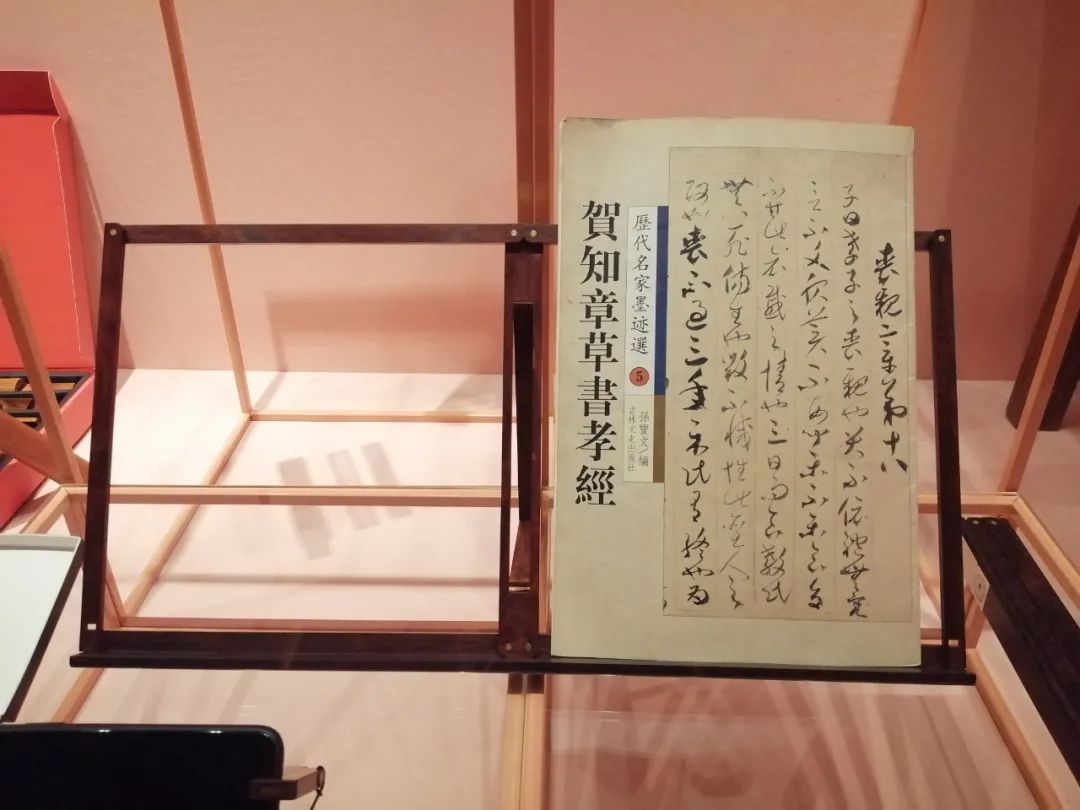 賀知章草書孝經
歷代名家墨迹選
5
孫寶文/編
吉林文史出版社
喪親章第十八
子曰孝子之喪親也哭不偯禮無容
言不文服美不安聞樂不樂食旨
不甘此哀戚之情也三日而食教民
無以死傷生也毀不滅性此聖人之
政也喪不過三年示民有終也為